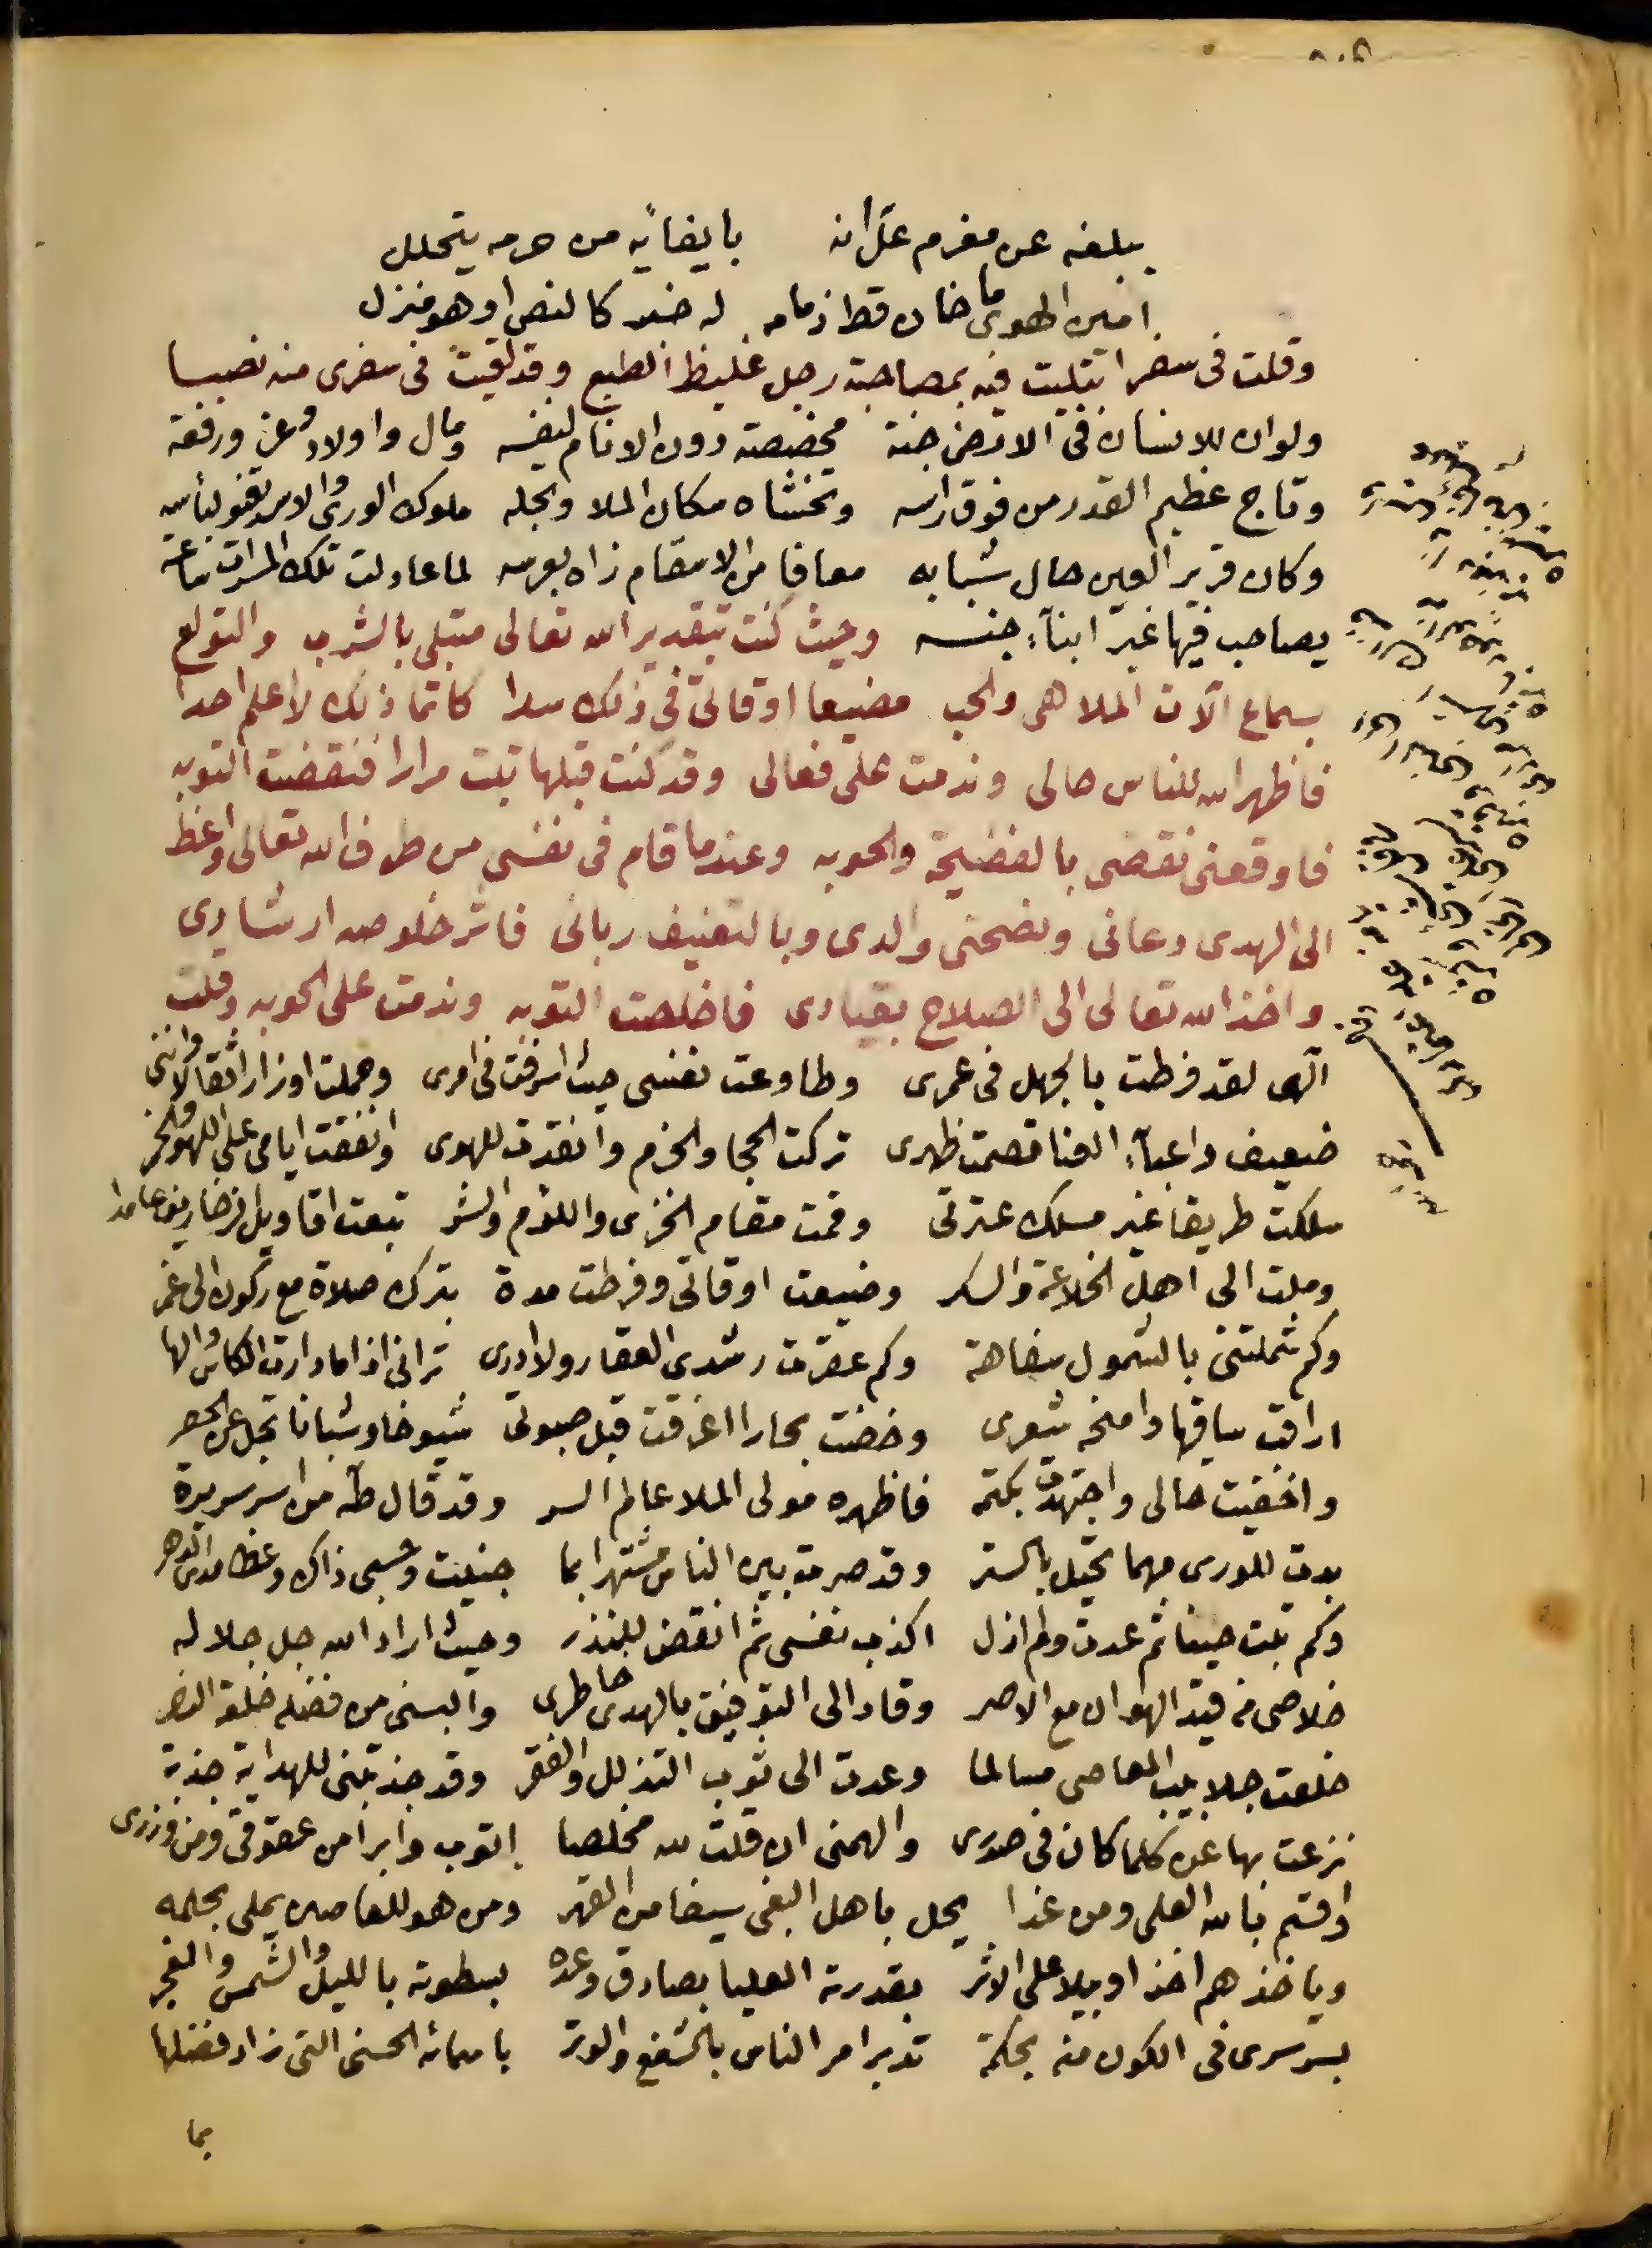 يبلغه عن مغرم علّ انه بايفائه من هرمه يتحلل
امين الهوى ما خان قط زمامه له خد كالنص او هو منزل
وقلت فى سفر ابتليت فيه بمصاحبة رجل غليظ الطبع وقد لقيت فى سفرى منه نصيبا
ولو ان للانسان فى الارض جنة مخصصة دون الانام لنفسه ومال واولاد وعز ورفعة
وتاج عظيم القدر من فوق راسه وتخشاه سكان الملا وتجله ملوك الورى والاسد تعنو لباسه
وكان قرير العين حال شبابه معافا من الاسقام زاه بعرسه لما عادلت تلك المسرات ساعة
يصاحب فيها غير ابناء جنسه وحيث كنت بتقدير الله تعالى مبتلى بالشرب والتولع
بسماع آلات الملاهى والحب مضيعا اوقاتى فى ذلك سدا كاتما ذلك لا اعلم احدا
فاظهر الله للناس حالى وندمت على فعالى وقد كنت قبلها تبت مرارا فنقضت التوبه
فاوقعنى نقضى بالفضيحة والحوبه وعندما قام فى نفسى من طرف الله تعالى واعظ
الى الهدى دعانى ونصحنى والدى وبالتعنيف ربانى فاثر خلوصه ارشادى
واخذ الله تعالى الى الصلاح بقيادى فاخلصت التوبه وندمت على الحوبه وقلت
آلهى لقد فرطت بالجهل فى عمرى وطاوعت نفسى حيث اسرفت فى امرى وحملت اوزارا ثقالا واننى
ضعيف واعباء العنا قصمت ظهرى تركت الحجا والحزم وانقدت للهوى وانفقت ايامى على اللهو والخمر
سلكت طريقا غير مسلك عترتى وقمت مقام الخزى واللؤم والشر تبعت اقاويل الزخاريف عامدا
وملت الى اهل الخلاعة والسكر وضيعت اوقاتى وفرطت مدة بترك صلاة مع ركون الى غمر
وكم شملتنى بالشمول سفاهة وكم عقرت رشدى العقار ولا ادرى ترانى اذا ما دارت الكاس والها
اراقب ساقيها وامنحه شعرى وخضت بحارا اغرقت قبل صبوتى شيوخا وشبانا تجل عن الحصر
واخفيت حالى واجتهدت بكتمه فاظهره مولى الملا عالم السر وقد قال طه من اسر سريرة
بدت للورى مهما تحيّل بالستر وقد صرت بين الناس مشتهرا بما جنيت وحسبى ذاك وعظا مدى الدهر
وكم تبت حينا ثم عدت ولم ازل اكذب نفسى ثم انقض للنذر وحيث اراد الله جل جلاله
خلاصى من قيد الهوان مع الاصر وقاد الى التوفيق بالهدى خاطرى والبسنى من فضله خلعة النصر
خلعت جلابيب المعاصى مسالما وعدت الى ثوب التذلل والفقر وقد جذبتنى للهداية جذبة
نزعت بها عن كلما كان فى صدرى والهمنى ان قلت لله مخلصا اتوب وابرا من عقوقى ومن وزرى
واقسم بالله العلى ومن غدا يحل باهل البغى سيفا من القهر ومن هو للعاصين يملى بحلمه
وياخذهم اخذا وبيلا على الاثر بقدرته العليا بصادق وعده بسطوته بالليل والشمس والفجر
بسر سرى فى الكون منه بحكمة تدبر امر الناس بالشفع والوتر باسمائه الحسنى التى زاد فضلها
بما